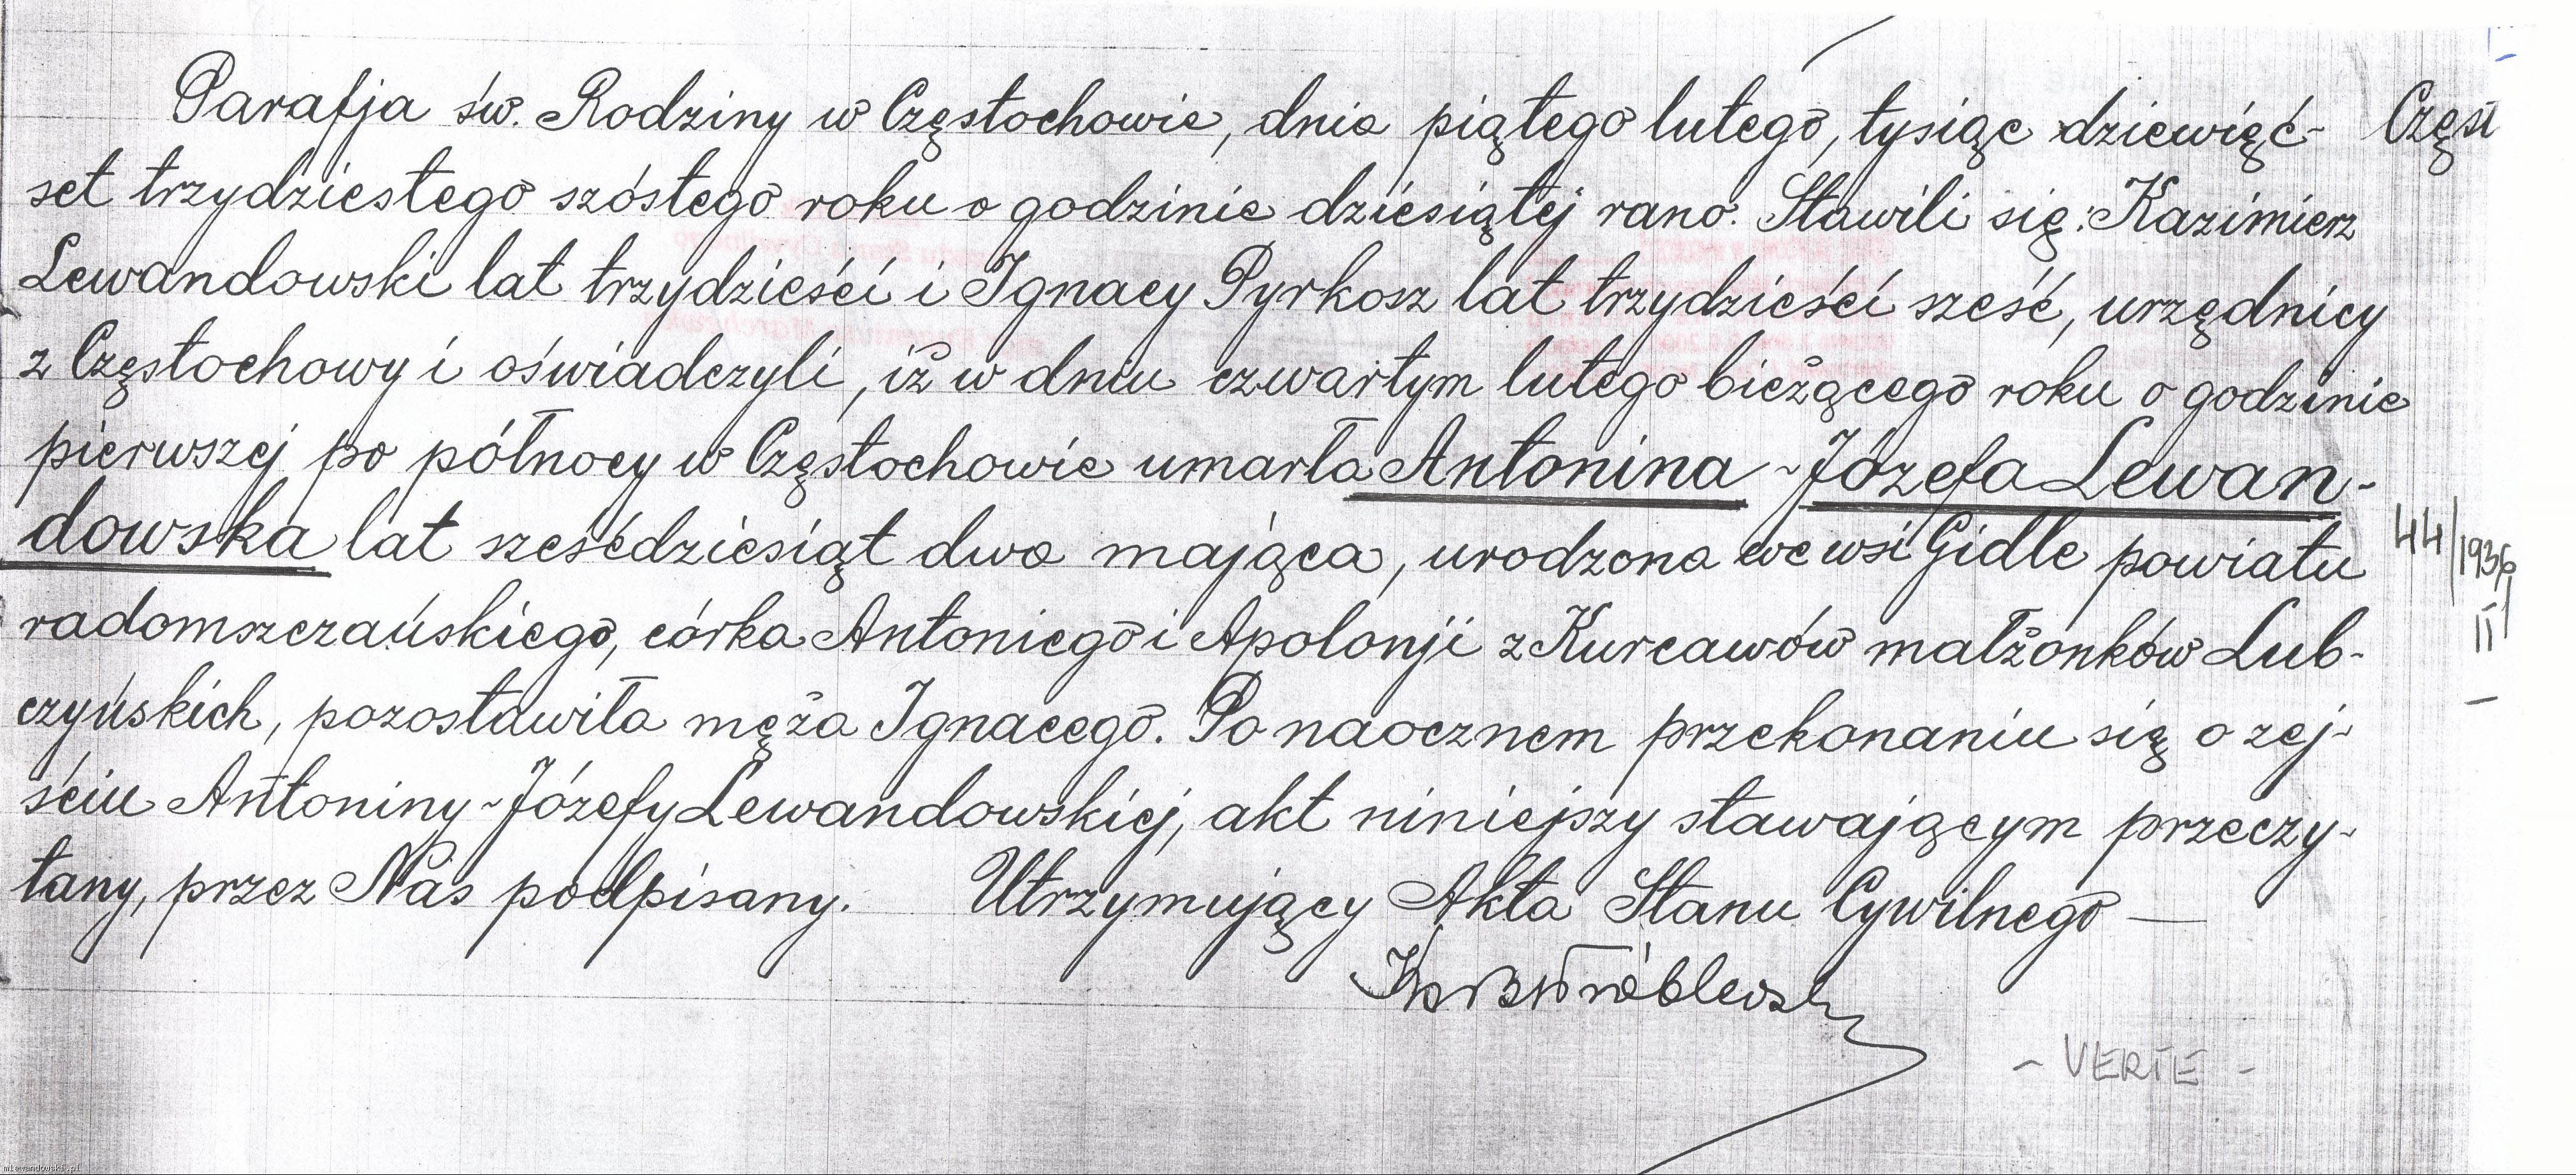 Parafja św. Rodziny w Częstochowie, dnia piątego lutego, tysiąc dziewięć-
set trzydziestego szóstego roku o godzinie dziesiątej rano. Stawili się: Kazimierz
Lewandowski lat trzydzieści i Ignacy Pyrkosz lat trzydzieści sześć, urzędnicy
z Częstochowy i oświadczyli, iż w dniu czwartym lutego bieżącego roku o godzinie
pierwszej po północy w Częstochowie umarła Antonina-Józefa Lewan-
dowska lat sześćdziesiąt dwa mająca, urodzona we wsi Gidle powiatu
radomszczańskiego, córka Antoniego i Apolonji z Kurcawów małżonków Lub-
czyńskich, pozostawiła męża Ignacego. Po naocznem przekonaniu się o zej-
ściu Antoniny-Józefy Lewandowskiej, akt niniejszy stawającym przeczy-
tany, przez Nas podpisany. Utrzymujący Akta Stanu Cywilnego —
Częst
44/1936
II
- VERTE -
mlewandowski.pl